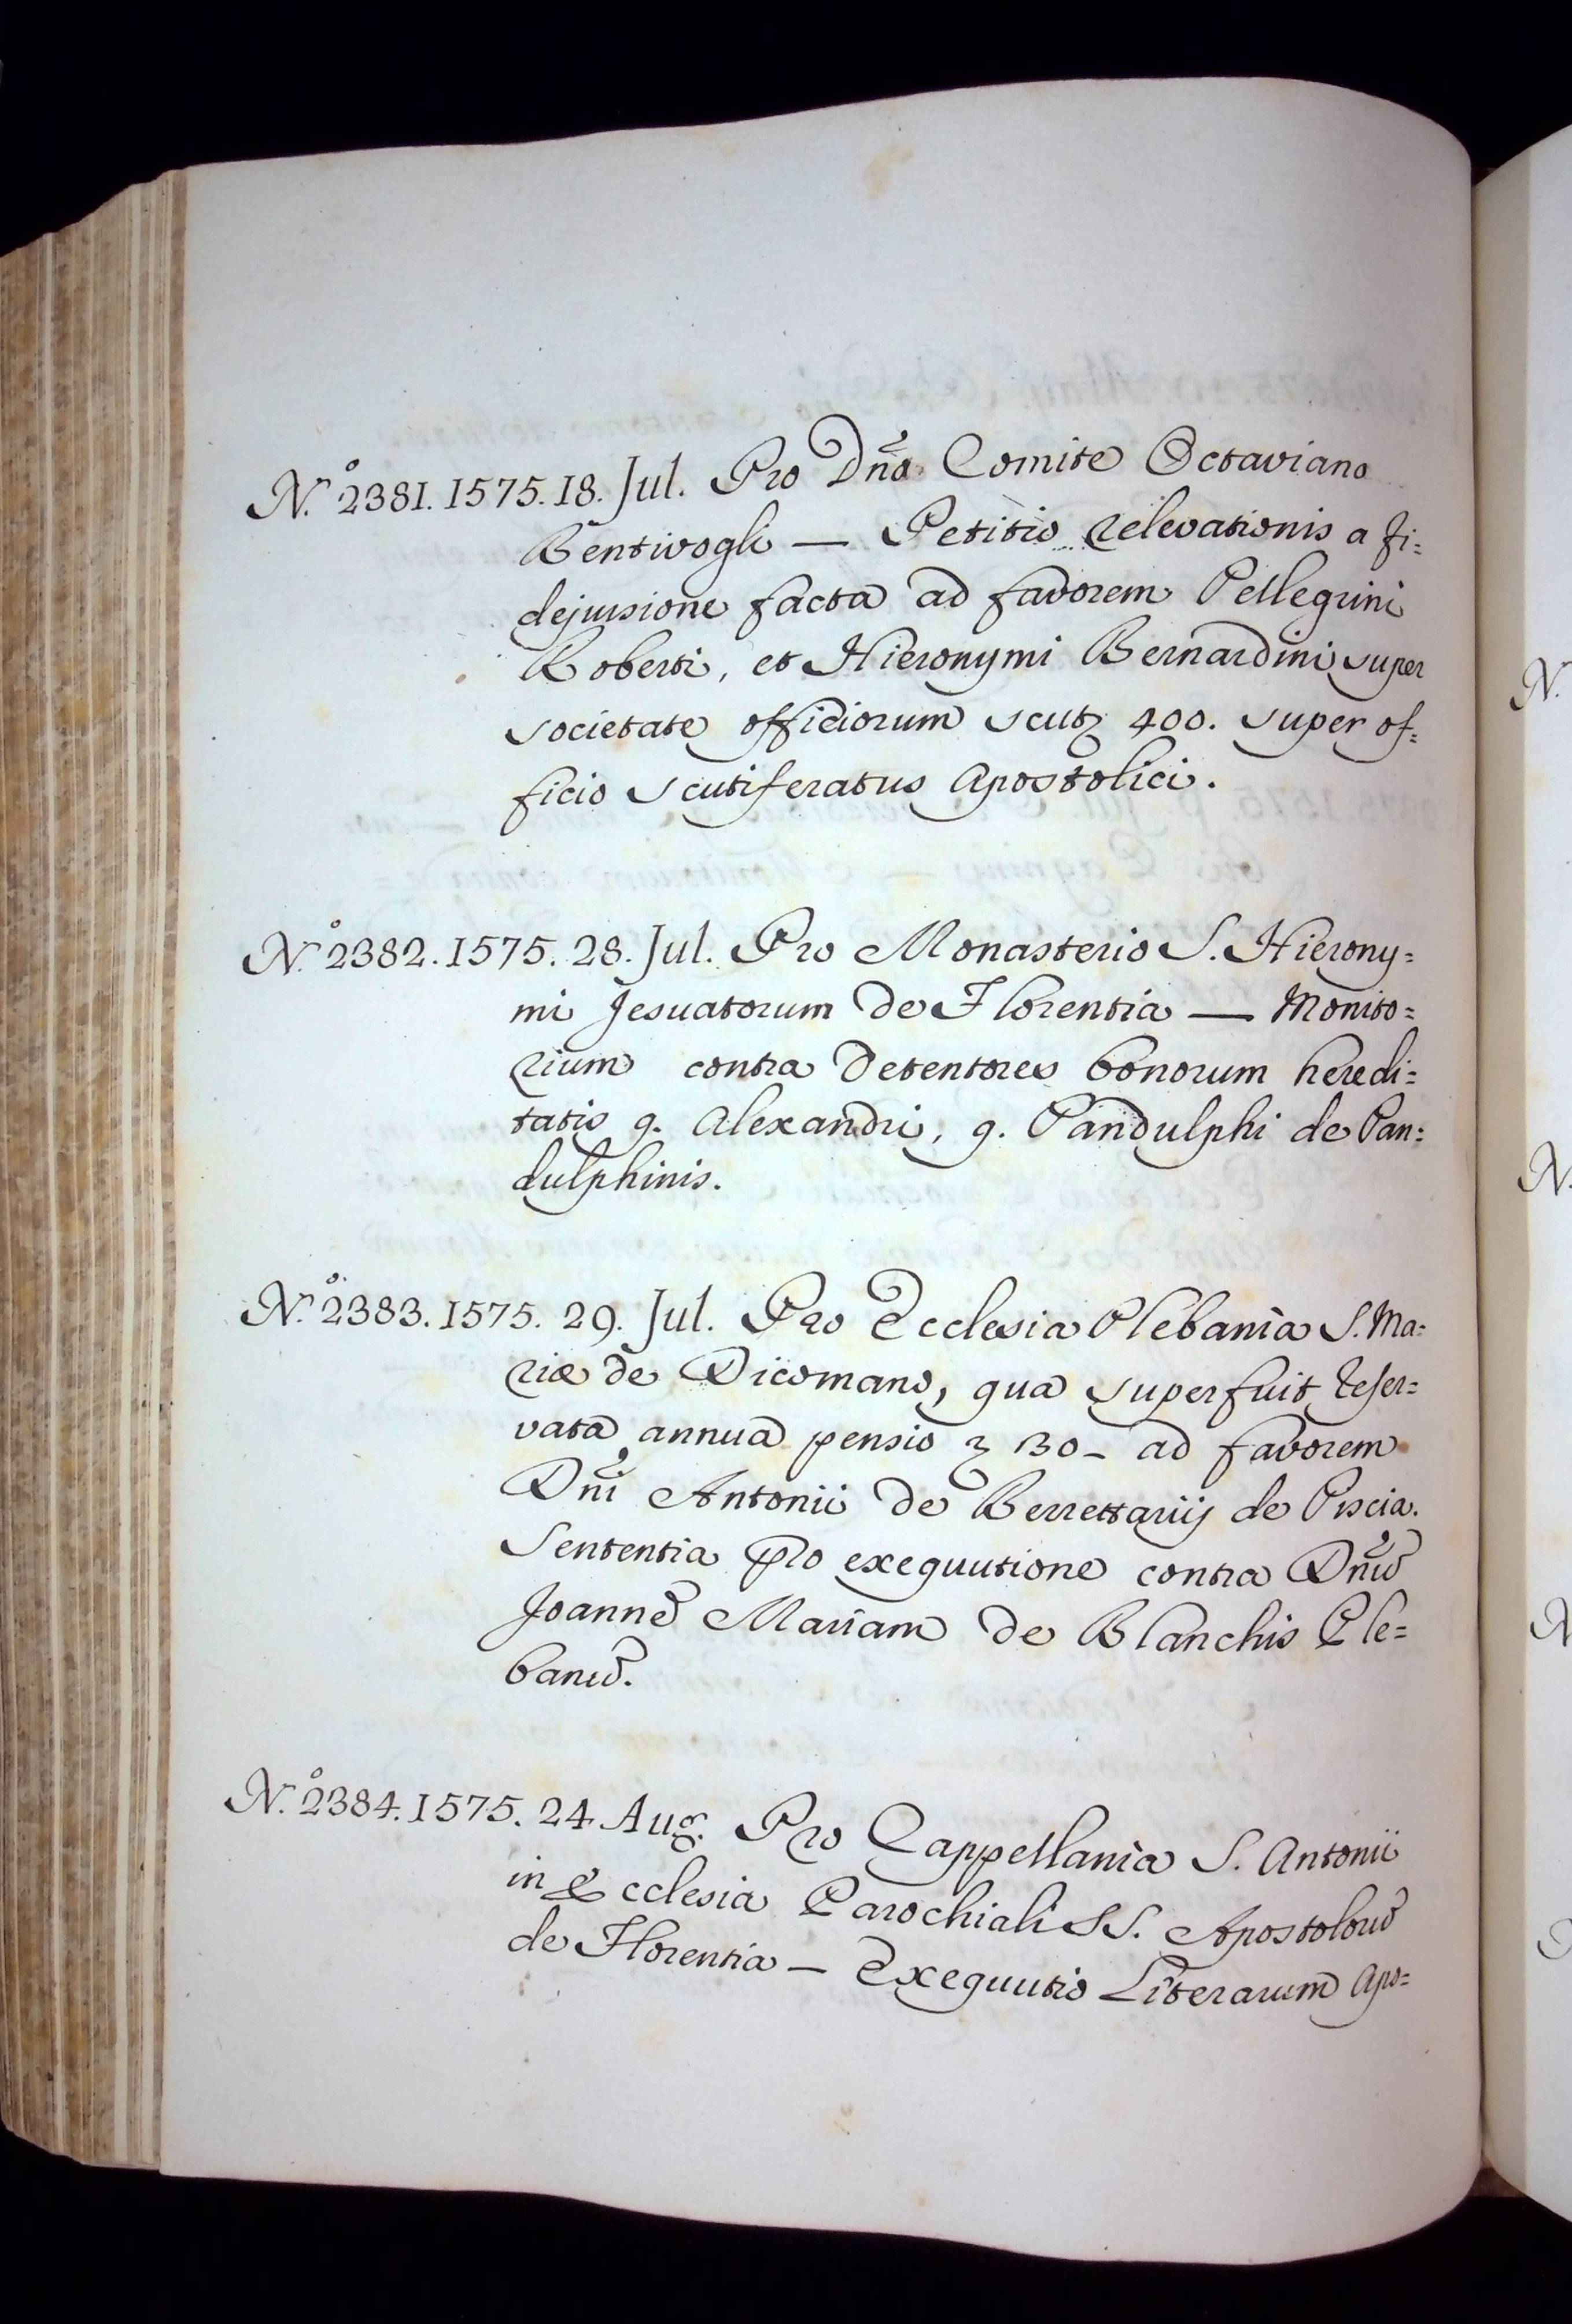 N.º 2381. 1575. 18. Jul. Pro Dño Comite Octaviano
Bentivogli — Petitio relevationis a fi=
dejussione facta ad favorem Pellegrini
Roberti, et Hieronymi Bernardini super
societate officiorum scutꝫ 400. super of=
ficio scutiferatus Apostolici.
N.º 2382. 1575. 28. Jul. Pro Monasterio S. Hierony=
mi Jesuatorum de Florentia — Monito=
rium contra Detentores bonorum heredi=
tatis q. Alexandri, q. Pandulphi de Pan=
dulphinis.
N.º 2383. 1575. 29. Jul. Pro Ecclesia Plebania S. Ma=
riæ de Dicomano, qua superfuit reser=
vata annua pensio ꝫ 130 - ad favorem
Dñi Antonii de Berrettariis de Piscia.
Sententia pro exequutione contra Dñu͂
Joanne͂ Mariam de Blanchis Ple=
banu͂.
N.º 2384. 1575. 24 Aug. Pro Cappellania S. Antonii
in Ecclesia Parochiali SS. Apostoloru͂
de Florentia — Exequutio Literarum Apo=
N.
N.
N